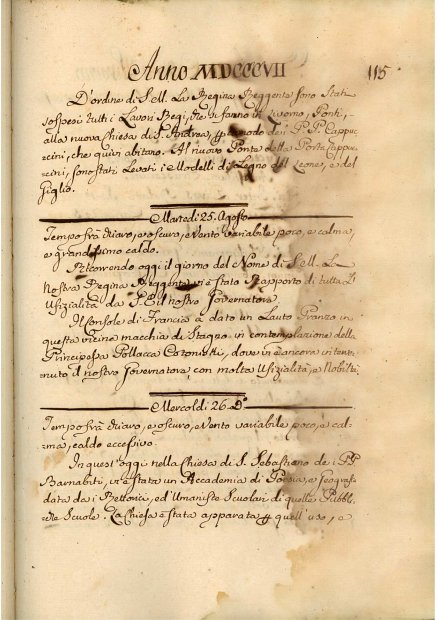 Anno MDCCCVII 115
D'ordine di S. M. La Regina Reggente sono Stati
sospesi tutti i Lavori Regj, che si fanno in Livorno, Ponti,
alla nuova Chiesa di S. Andrea, p modo dei P. P. Cappuc-
cini, che quivi abitano. Al nuovo Ponte della Porta Cappuc-
cini, sono stati Levati i Modelli di Legno del Leone, e del
Giglio.
Martedì 25. Agosto
Tempo frà chiaro, e oscuro, e Vento variabile poco, e calma,
e grandissimo caldo.
Ricorrendo oggi il giorno del Nome di S. M. La
Nostra Regina Reggente vi è stato Rapporto di tutta L'
Ufizialità da S. E. il nostro Governatore
Il Console di Francia à dato un Lauto Pranzo in
questa vicina macchia di Stagno in contemplazione della
Principessa Pollacca dove in è ancora inter-
nuto il nostro Governatore, con molta Ufizialità, e Nobiltà.
Mercoldì 26. Do
Tempo frà chiaro, e oscuro, e Vento variabile poco, e cal-
ma, caldo eccessivo.
In quest'oggi nella Chiesa di S. Sebastiano de i PP.
Barnabiti, vi è stata un Accademia di Poesia, e Geografia
data da i Rettorici, ed Umanisti Scuolari di quelle Pubbli-
che Scuole. La Chiesa è stata apparata p quell'uso, e